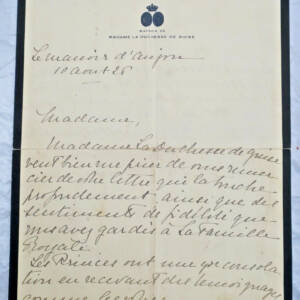 MAISON DE
MADAME LA DUCHESSE DE GUISE
Le Manoir d'Anjou
10 août 26
Madame,
Madame La Duchesse de Guise
veut bien me prier de vous remer
cier de votre lettre qui la touche
profondément, ainsi que des
sentiments de fidélité que
vous avez gardés à la Famille
Royale.
Les Princes ont une consola
tion en recevant des témoignages
comme